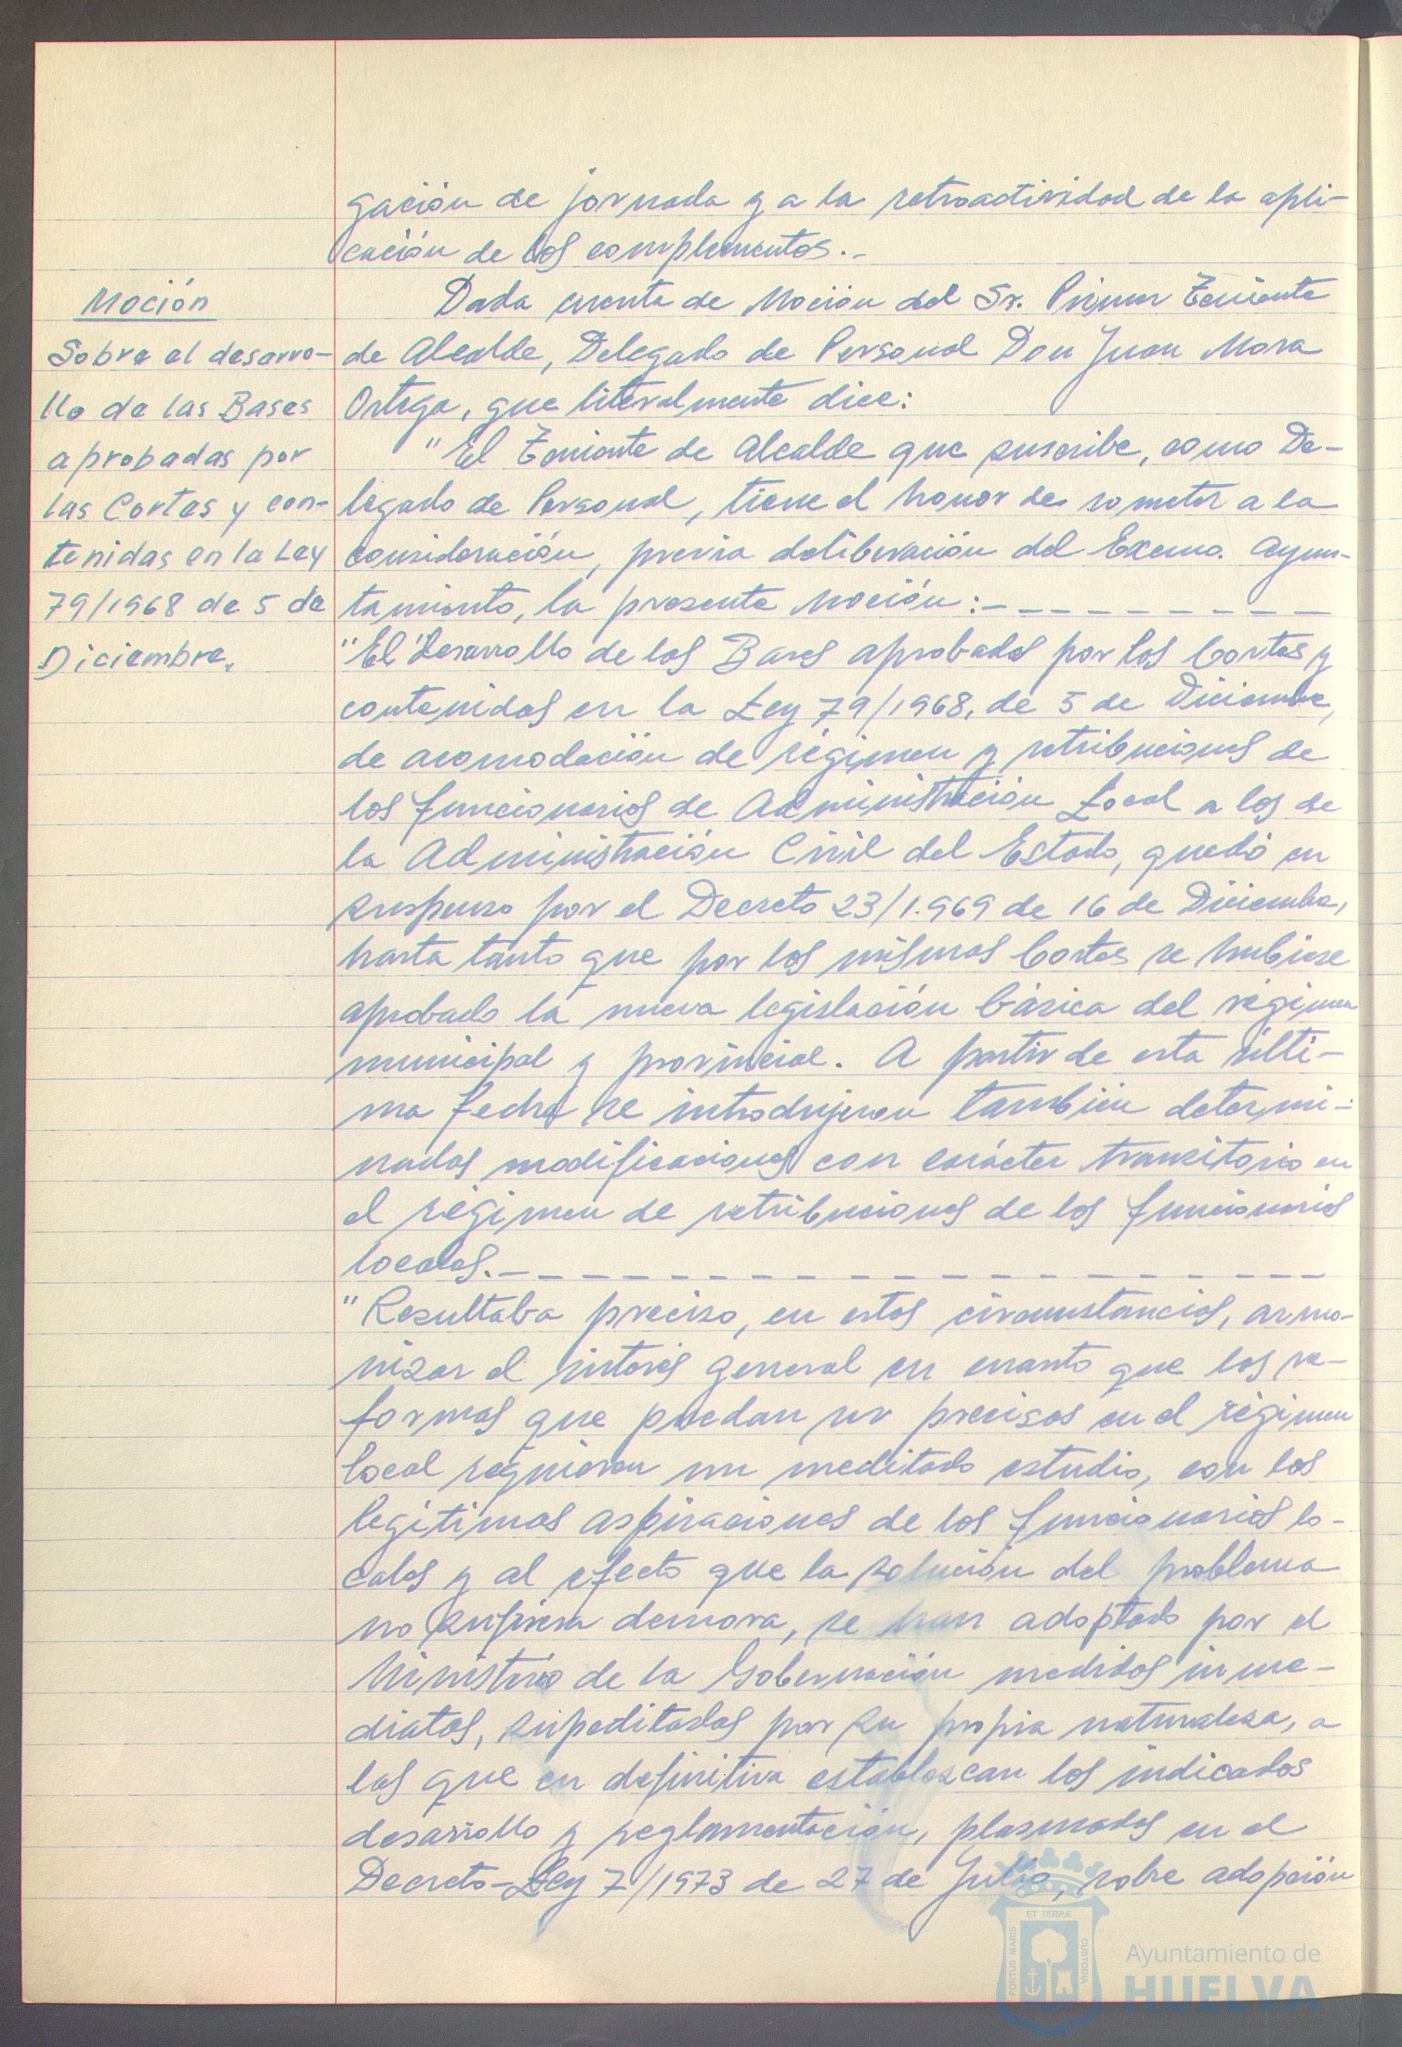 gación de jornada y a la retroactividad de la apli-
cación de los complementos.-
Moción
Sobre el desarro-
llo de las Bases
aprobadas por
las Cortes y con-
tenidas en la Ley
79/1968 de 5 de
Diciembre.
Dada cuenta de Moción del Sr. Primer Teniente
de Alcalde, Delegado de Personal Don Juan Mora
Ortega, que literalmente dice:
"El Teniente de Alcalde que suscribe, como De-
legado de Personal, tiene el honor de someter a la
consideración, previa deliberación del Excmo. Ayun-
tamiento, la presente Moción:- - - - - - - - -
"El Desarrollo de las Bases aprobadas por las Cortes y
contenidas en la Ley 79/1968, de 5 de Diciembre,
de acomodación de régimen y retribuciones de
los funcionarios de Administración Local a los de
la Administración Civil del Estado, quedó en
suspenso por el Decreto 23/1.969 de 16 de Diciembre,
hasta tanto que por las mismas Cortes se hubiese
aprobado la nueva legislación básica del régimen
municipal y provincial. A partir de esta últi-
ma fecha se introdujeron también determi-
nadas modificaciones con carácter transitorio en
el régimen de retribuciones de los funcionarios
locales.- - - - - - - - - - - - - - - - - - -
"Resultaba preciso, en estas circunstancias, armo-
nizar el interés general en cuanto que las re-
formas que puedan ser precisas en el régimen
local requieran un meditado estudio, con las
legítimas aspiraciones de los funcionarios lo-
cales y al efecto que la solución del problema
no sufriera demora, se han adoptado por el
Ministerio de la Gobernación medidas inme-
diatas, supeditadas por su propia naturaleza, a
las que en definitiva establezcan los indicados
desarrollo y reglamentación, plasmadas en el
Decreto-Ley 7/1973 de 27 de Julio, sobre adopción
PORTUS MARIS
ET TERRÆ
CUSTODIA
Ayuntamiento de
HUELVA